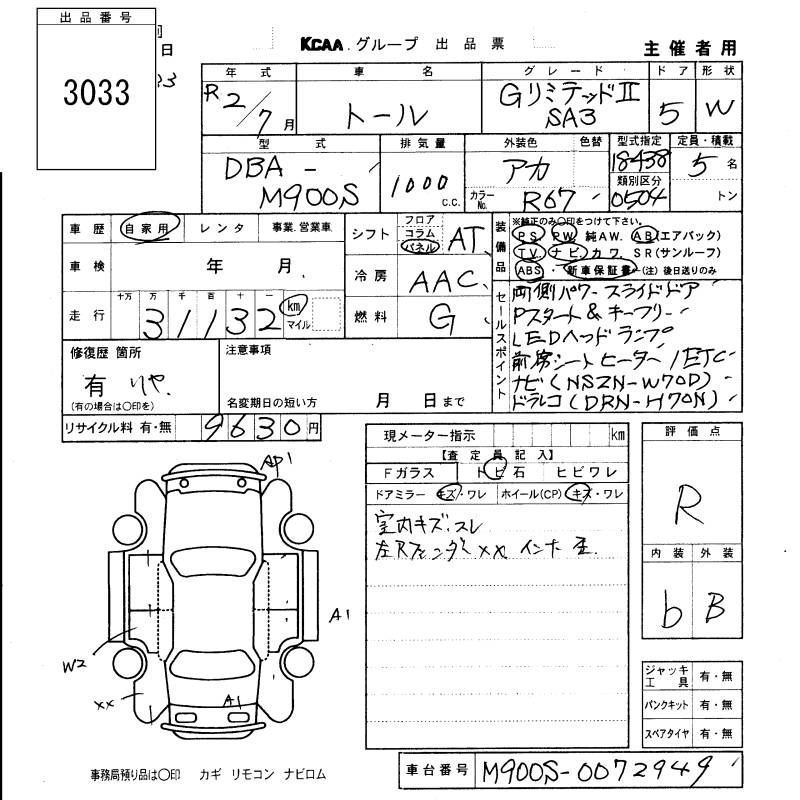 出品番号
3033
日
KCAA グループ 出品票
主催者用
年式 車名 グレード ドア 形状
R2/7月 トール GリミテッドⅡ SA3 5 W
型式 排気量 外装色 色替 型式指定 定員・積載
DBA-M900S 1000 C.C. アカ カラーNo. R67 18438 類別区分 0504 5名 トン
車歴 自家用 レンタ 事業.営業車
シフト フロア コラム パネル AT
装備品 ※純正のみ〇印をつけて下さい。
PS PW 純AW. AB(エアバック)
TV. ナビ カワ. SR(サンルーフ)
ABS・新車保証書(注)後日送りのみ
車検 年 月
冷房 AAC
走行 十万 万 千 百 十 一
31132 km マイル
燃料 G
セールスポイント
両側パワースライドドア
Pスタート&キーフリー
LEDヘッドランプ
前席シートヒーター/ETC
ナビ(NSZN-W70D)
ドラレコ(DRN-H70N)
修復歴 箇所
有
(有の場合は〇印を)
注意事項
名変期日の短い方 月 日まで
リサイクル料 有・無 9630円
現メーター指示 km
【査定員記入】
Fガラス トビ石 ヒビワレ
ドアミラー キズ・ワレ ホイール(CP) キズ・ワレ
室内キズ.スレ
左Rフェンダー XX インナー 歪
評価点
R
内装 外装
b B
A1
A1
W2
XX
A1
ジャッキ工具 有・無
パンクキット 有・無
スペアタイヤ 有・無
事務局預り品は〇印 カギ リモコン ナビロム
車台番号 M900S-0072949